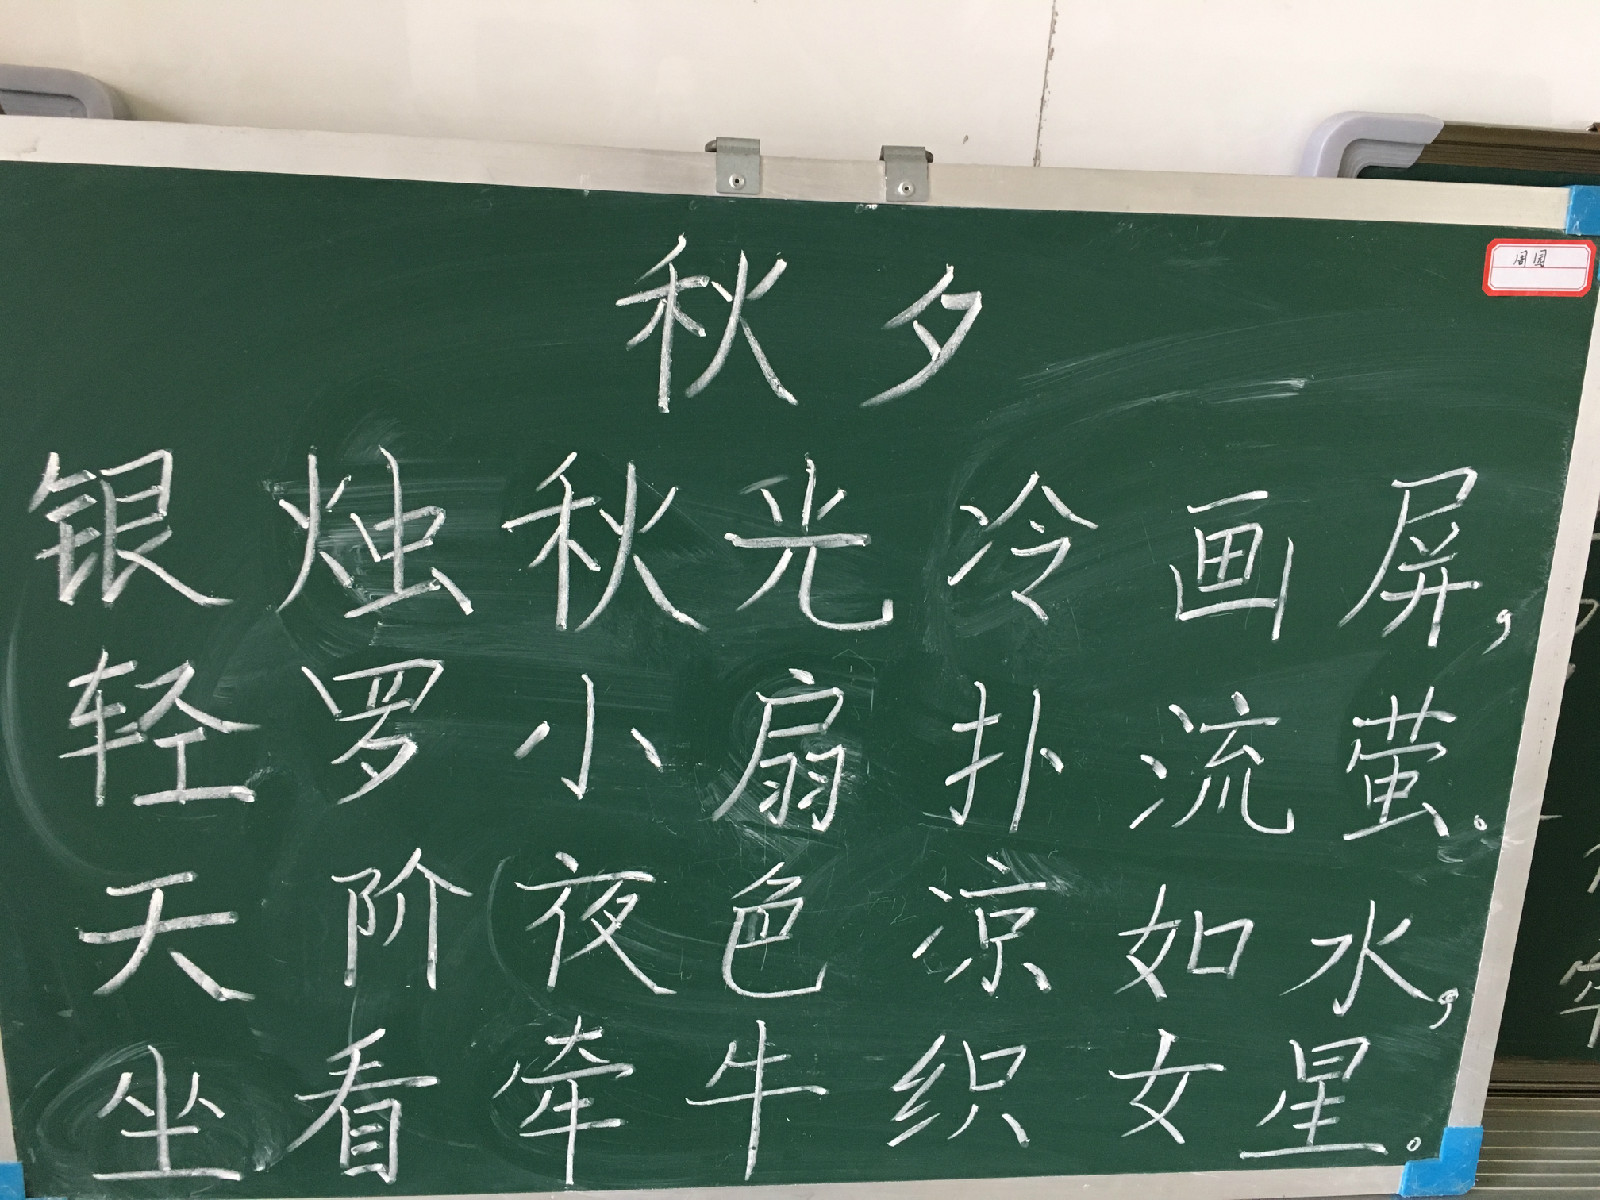 秋夕
银烛秋光冷画屏,
轻罗小扇扑流萤.
天阶夜色凉如水,
坐看牵牛织女星。